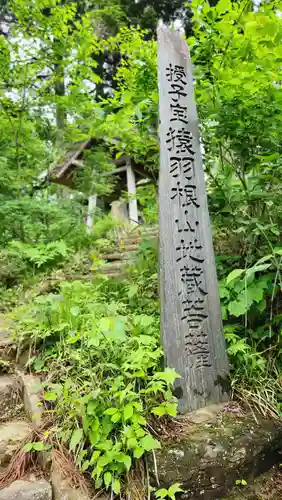 授子宝 猿羽根山地蔵菩薩